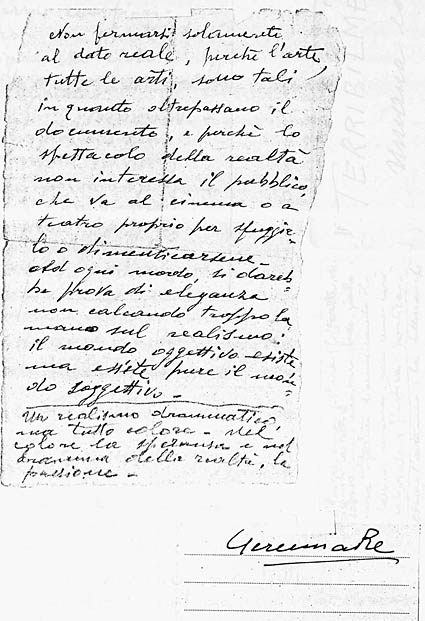 Non fermarsi solamente
al dato reale, perchè l'arte,
tutte le arti, sono tali
in quanto oltrepassano il
documento, e perchè lo
spettacolo della realtà
non interessa il pubblico,
che va al cinema o a
teatro proprio per sfuggir=
lo o dimenticarsene.
Ad ogni modo, si dareb=
be prova di eleganza
non calcando troppo la
mano sul realismo:
il mondo oggettivo esiste
ma esiste pure il mon=
do soggettivo.
Un realismo drammatico,
ma tutto colore. Nel
colore la speranza e nel
dramma della realtà, la
passione.
Geremia Re